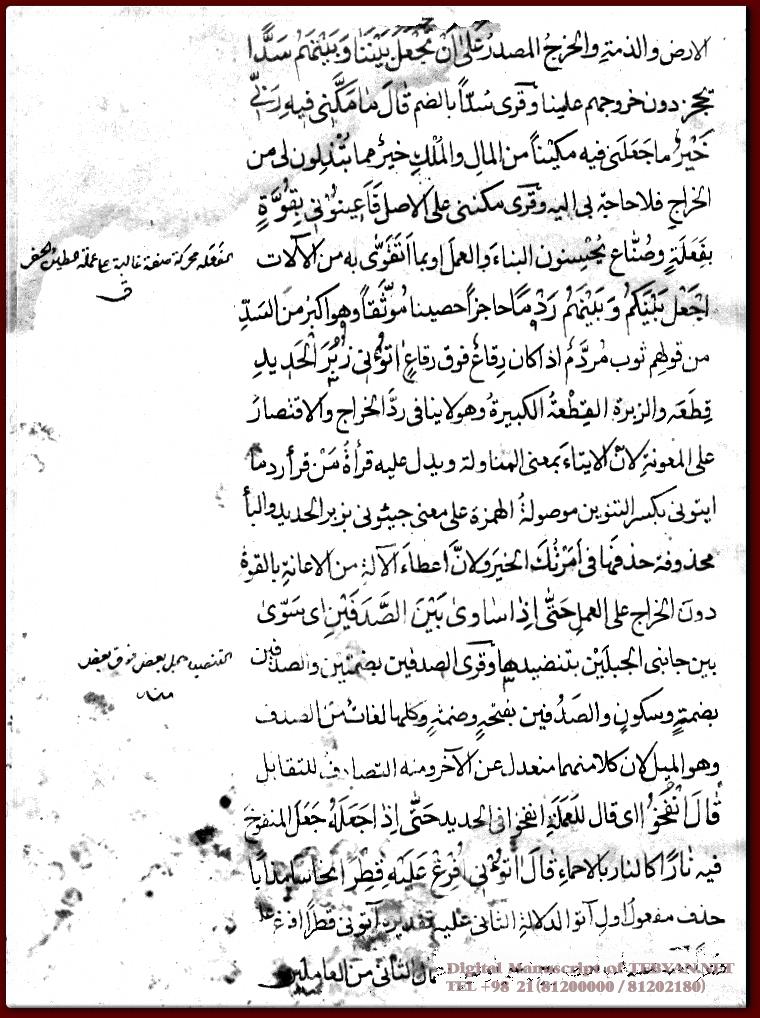 الارض والذمة والخرج المصدر عَلىٰ اَنْ تَجْعَلَ بَيْنَنَا وَبَيْنَهُمْ سَدًّا
تحجز دون خروجهم علينا وقرى سُدّاً بالضم قَالَ مَا مَكَّنّى فيهِ رَبّى
خَيْرٌ ما جَعَلَنى فيه مكيناً من المال والمُلْكِ خيرٌ مما تبْذلون لى من
الخراج فلا حاجة بى اليه وقرى مكننى على الاصل فَاَعينُونى بِقُوَّةٍ
بفَعَلَةٍ وصُنّاع يُحْسِنون البناءَ والعملَ او بما اَتَقَوّٰى به من الآلات
المفعلة محركة صفة غالبة على عملة الطين والحفر
ق
اَجْعَلْ بَيْنَكُمْ وَبَيْنَهُمْ رَدْمًا حاجزاً حصينا مُوَثَّقاً وهو اكبرُ من السَدِّ
من قولهم ثوب مُردَّمٌ اذا كان رِقاعٌ فوق رقاعٍ اٰتُونى زُبُرَ الْحَديدِ
قِطَعَه والزبرة القِطْعةُ الكبيرةُ وهو لا ينافى ردَّ الخراج والاقتصارَ
على المعونةِ لانّ الايتاءَ بمعنى المناولة ويدل عليه قرأةُ مَنْ قرأ ردما
ايتونى بكسر التنوين موصولةُ الهمزة على معنى جيئونى بزبر الحديد والبأ
محذوفة حذفها فى اَمَرْتُكَ الخيرَ ولانَّ اعطاءَ الآلةِ من الاعانةِ بالقوة
دون الخراج على العملِ حَتّٰى اِذَا سَاوىٰ بَيْنَ الصَّدَفَيْنِ اى سَوّىٰ
بين جانبى الجبلَيْن بتنضيدها وقرى الصدفين بضمتين والصدفين
التنضيد حمل بعض فوق بعض
منه
بضمةٍ وسكونٍ والصَدُفين بفتحةٍ وضمةٍ وكلها لغاتٌ من الصدف
وهو الميل لان كلا منهما منعدل عن الآخر ومنه التصادف للتقابل
قَالَ انْفُخُوا اى قال للعَمَلَةِ انفخوا فى الحديد حَتّٰى اِذَا جَعَلَهُ جَعَلَ المنفوخ
فيه نَارًا كالنار بالاحماءِ قَالَ اٰتُونى اُفْرِغْ عَلَيْهِ قِطْرًا نحاسا مذابا
حذف مفعول اول آتوا لدلالةِ الثانى عليه تقديره آتونى قطراً افرغ عليه
الثانى من العاملين
Digital Manuscript of TEBYAN.NET
TEL +98 21(81200000 / 81202180)